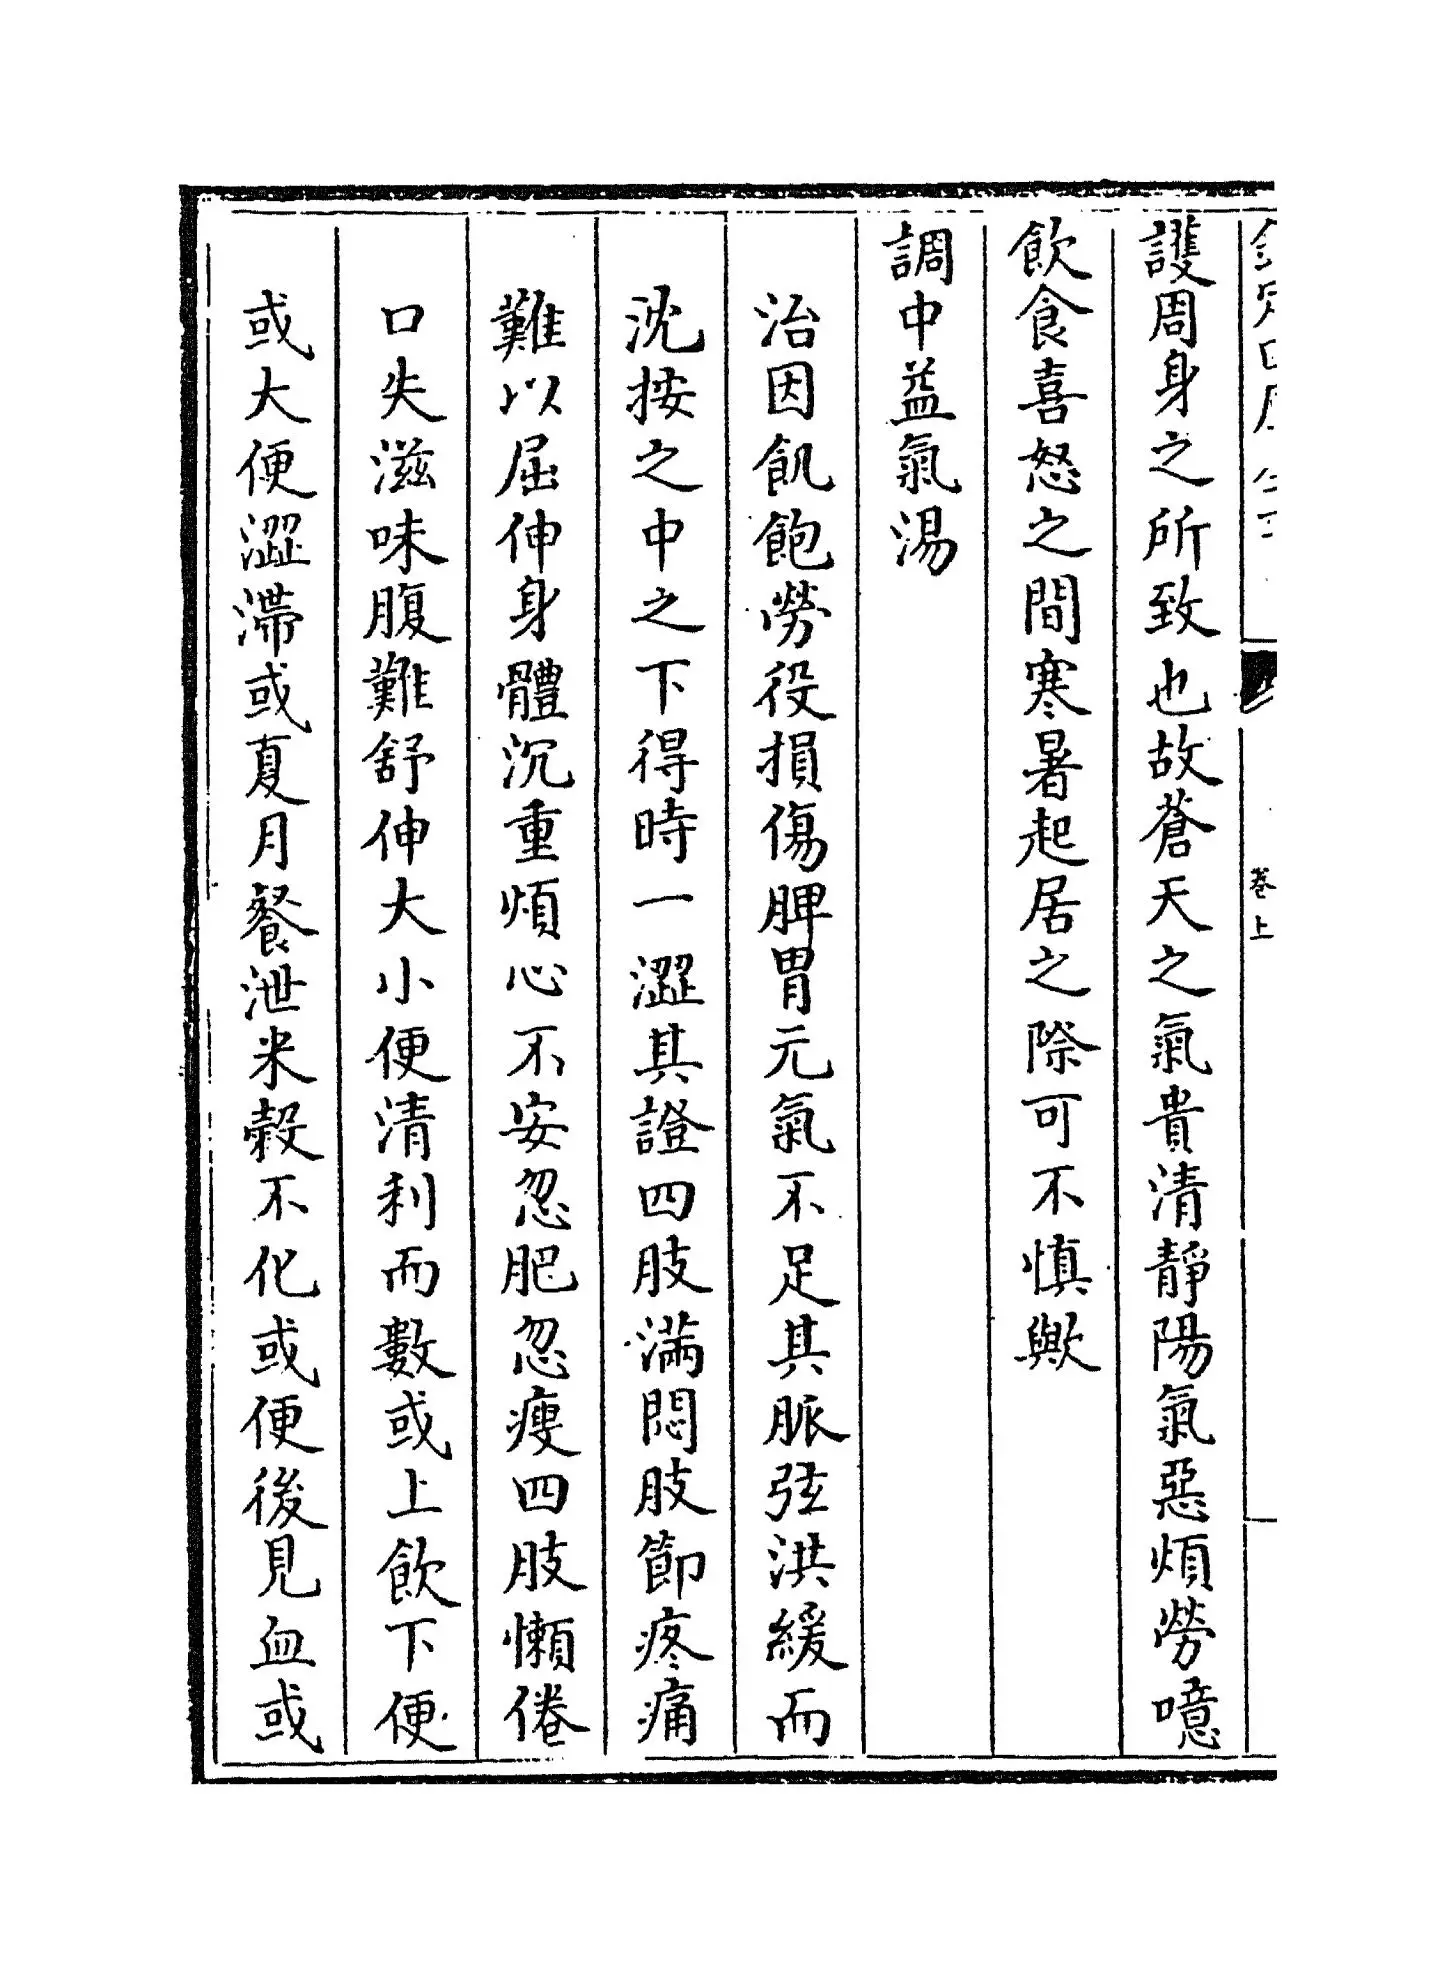 護周身之所致也故蒼天之氣貴清靜陽氣惡煩勞噫
飲食喜怒之間寒暑起居之際可不慎歟
調中益氣湯
治因飢飽勞役損傷脾胃元氣不足其脈弦洪緩而
沈按之中之下得時一澀其證四肢滿悶肢節疼痛
難以屈伸身體沉重煩心不安忽肥忽瘦四肢懶倦
口失滋味腹難舒伸大小便清利而數或上飲下便
或大便澀滯或夏月餐泄米穀不化或便後見血或
卷上